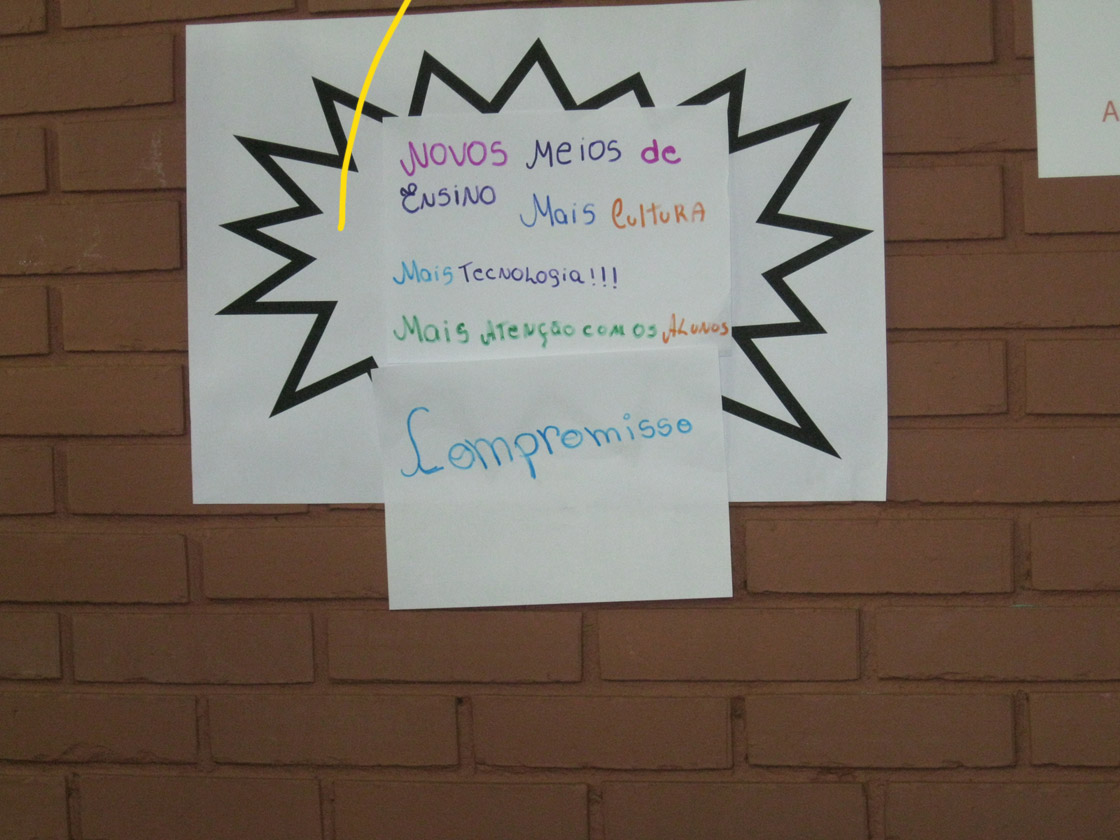 Novos Meios de
Ensino Mais Cultura
Mais Tecnologia!!!
Mais Atenção com os Alunos
Compromisso
A